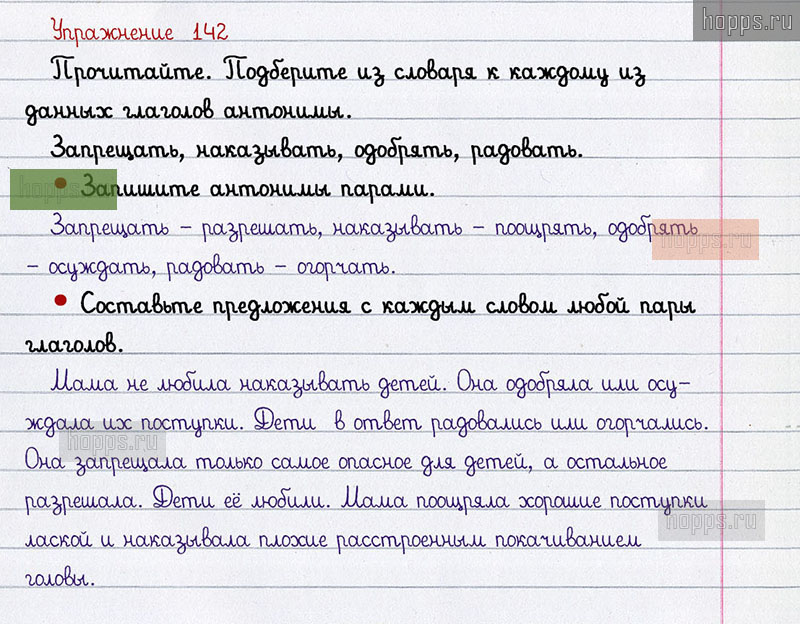 hopps.ru
Упражнение 142
Прочитайте. Подберите из словаря к каждому из
данных глаголов антонимы.
Запрещать, наказывать, одобрять, радовать.
hopps.ru
• Запишите антонимы парами.
Запрещать – разрешать, наказывать – поощрять, одобрять
hopps.ru
– осуждать, радовать – огорчать.
• Составьте предложения с каждым словом любой пары
глаголов.
Мама не любила наказывать детей. Она одобряла или осу-
ждала их поступки. Дети в ответ радовались или огорчались.
hopps.ru
Она запрещала только самое опасное для детей, а остальное
разрешала. Дети её любили. Мама поощряла хорошие поступки
hopps.ru
лаской и наказывала плохие расстроенным покачиванием
головы.